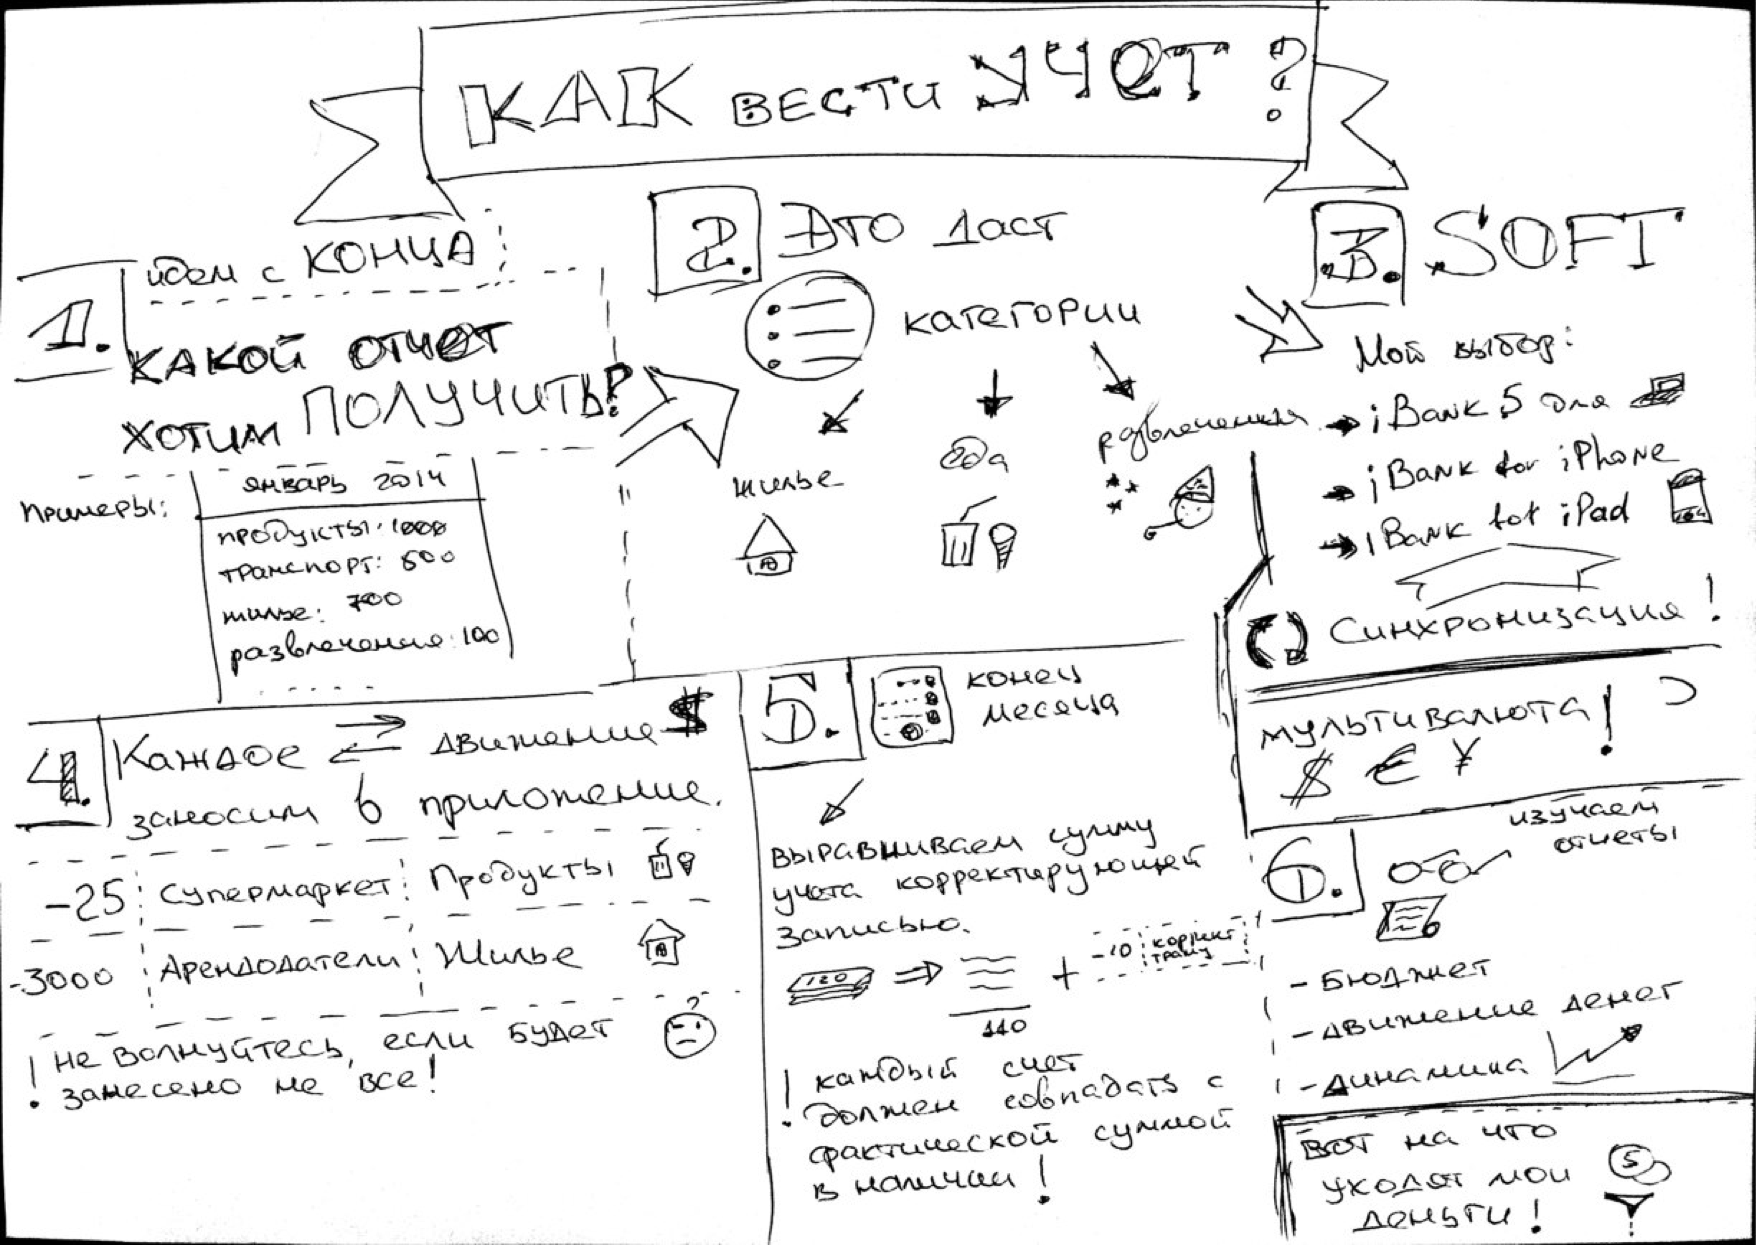 КАК ВЕСТИ УЧЕТ?
1.
идем с КОНЦА
КАКОЙ ОТЧЕТ
ХОТИМ ПОЛУЧИТЬ?
Примеры:
январь 2014
продукты: 1000
транспорт: 500
жилье: 700
развлечения: 100
.....
2. Это даст
категории
жилье
еда
развлечения
3. SOFT
Мой выбор:
iBank 5 для
iBank for iPhone
iBank for iPad
Синхронизация!
мультивалюта!
$ € ¥
4.
Каждое движение $
заносим в приложение.
-25 Супермаркет Продукты
-3000 Арендодатели Жилье
! Не волнуйтесь, если будет
занесено не все!
?
5.
конец
месяца
выравниваем сумму
учета корректирующей
записью.
120
+ -10
110
! каждый счет
должен совпадать с
фактической суммой
в наличии!
6.
изучаем
отчеты
- Бюджет
- движение денег
- динамика
Вот на что
уходят мои
деньги!